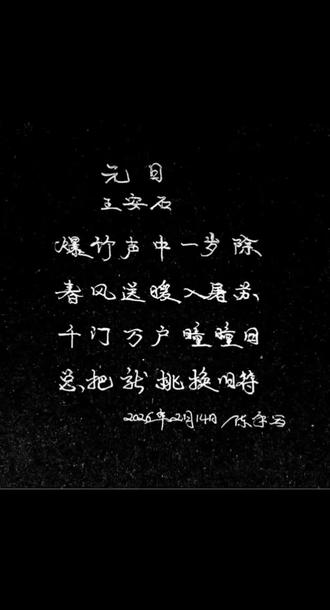 元日
王安石
爆竹声中一岁除
春风送暖入屠苏
千门万户瞳瞳日
总把新桃换旧符
2026年02月14日 陈